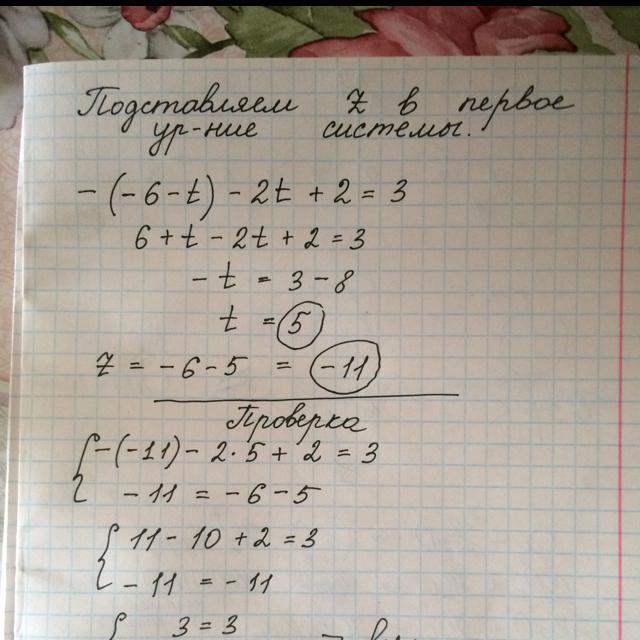 Подставляем z в первое
ур-ние системы.
- (-6-t) - 2t + 2 = 3
6 + t - 2t + 2 = 3
- t = 3 - 8
t = 5
z = -6-5 = -11
Проверка
-(-11) - 2·5 + 2 = 3
-11 = -6-5
11 - 10 + 2 = 3
-11 = -11
3 = 3